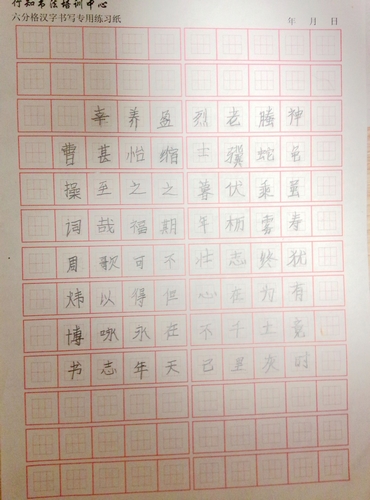 行知书法培训中心
六分格汉字书写专用练习纸 年 月 日
神龟虽寿犹有竟时
腾蛇乘雾终为土灰
老骥伏枥志在千里
烈士暮年壮心不已
盈缩之期不但在天
养怡之福可得永年
幸甚至哉歌以咏志
曹操词周炜博书